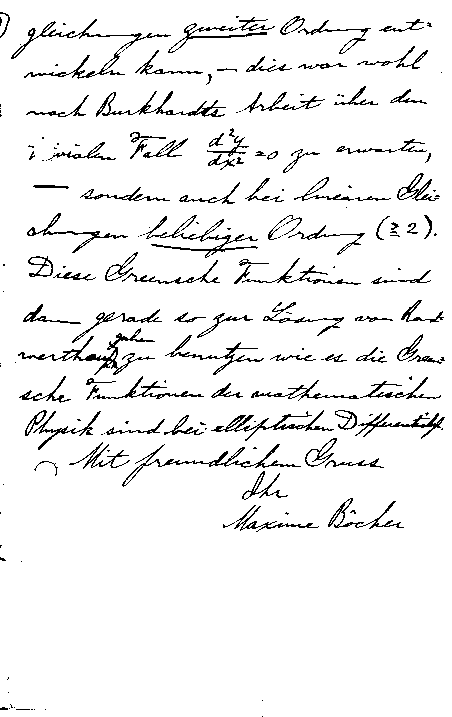 gleichungen zweiter Ordnung ent-
wickeln kann, — dies war wohl
nach Burkhardts Arbeit über den
trivialen Fall d²y/dx² = 0 zu erwarten,
— sondern auch bei linearen Glei-
chungen beliebiger Ordnung (≥ 2).
Diese Greensche Funktionen sind
dann gerade so zur Lösung von Rand-
werthaufgaben zu benutzen wie es die Green-
sche Funktionen der mathematischen
Physik sind bei elliptischen Differentialgl.
Mit freundlichem Gruss
Ihr
Maxime Bôcher